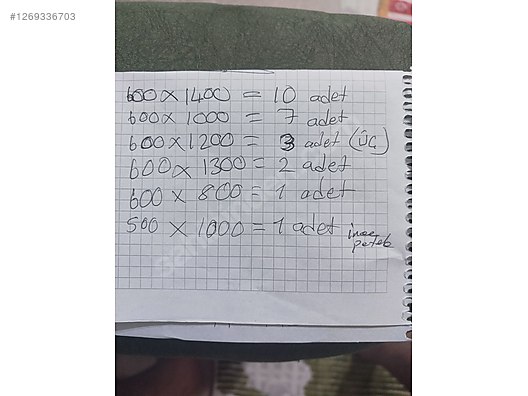 #1269336703
600 x 1400 = 10 adet
600 x 1000 = 7 adet
600 x 1200 = 3 adet (ÜÇ)
600 x 1300 = 2 adet
600 x 800 = 1 adet
500 x 1000 = 1 adet ince
petek